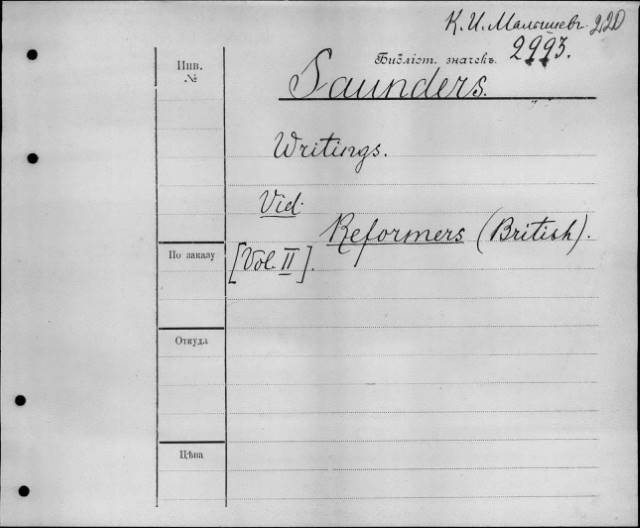 К. И. Малышевъ 220
2993.
Библіот. значекъ.
Saunders.
Инв.
№
Writings.
Vid.
Reformers (British).
[Vol. II].
По заказу
Откуда
Цѣна